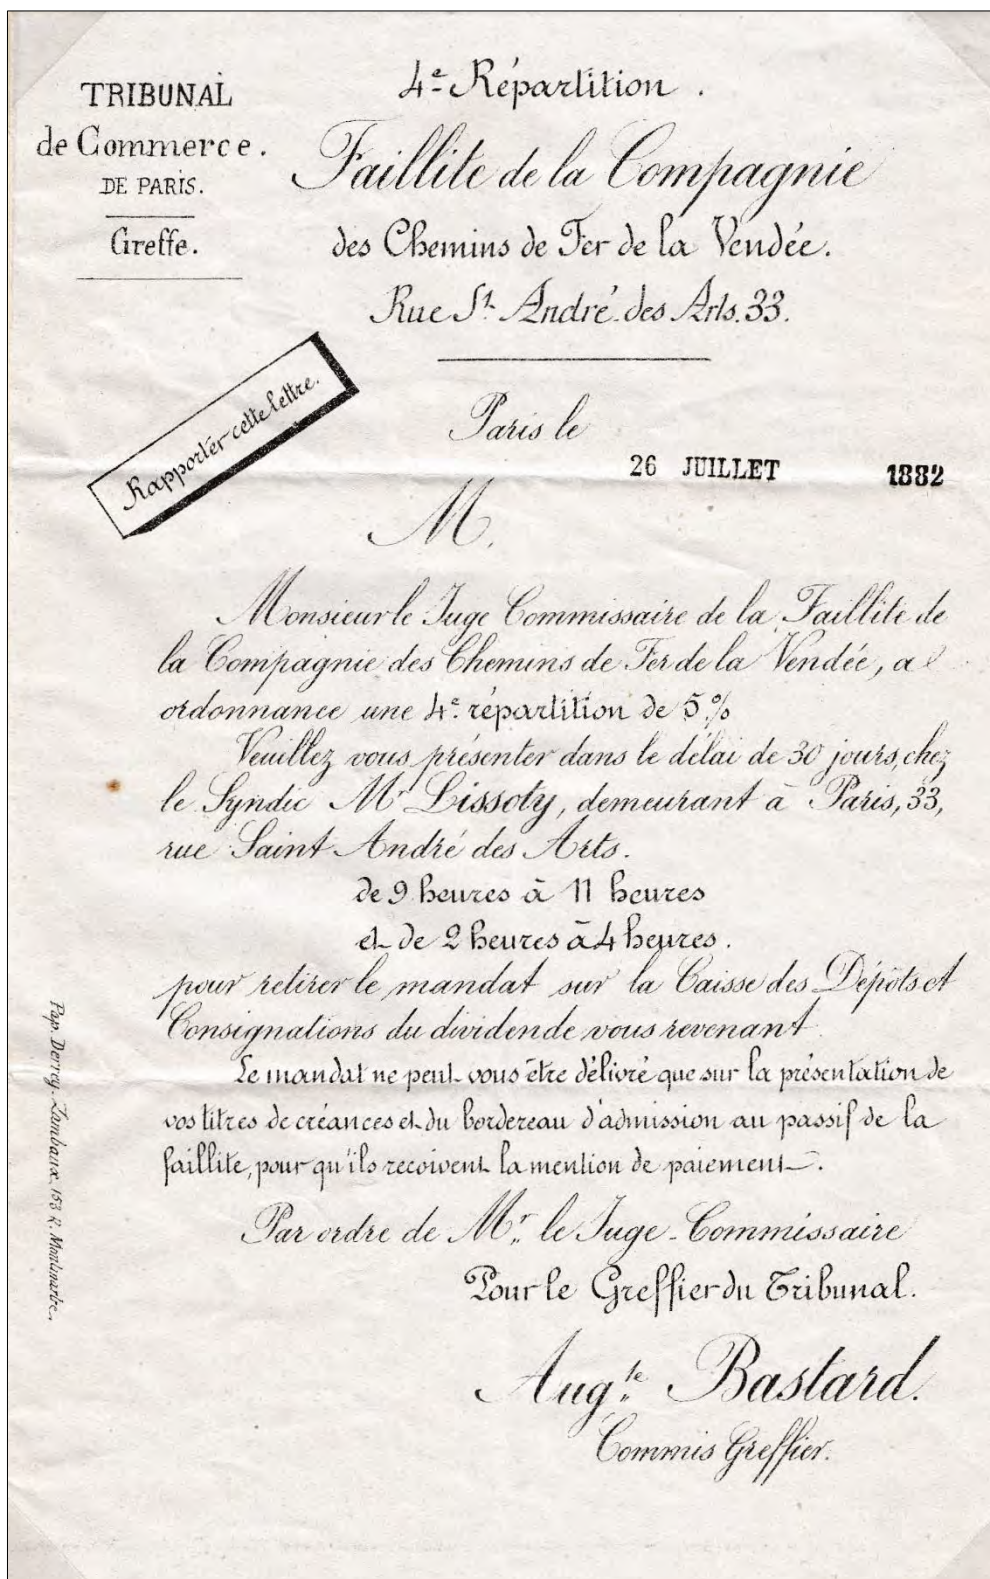 TRIBUNAL
de Commerce.
DE PARIS.
Greffe.
4e Répartition.
Faillite de la Compagnie
des Chemins de Fer de la Vendée.
Rue St. André des Arts. 33.
Rapporter cette lettre.
Paris le
26 JUILLET 1882
M.
Monsieur le Juge Commissaire de la Faillite de
la Compagnie des Chemins de Fer de la Vendée, a
ordonnance une 4e répartition de 5%
Veuillez vous présenter dans le délai de 30 jours, chez
le Syndic Mr Lissoty, demeurant à Paris, 33,
rue Saint André des Arts.
de 9 heures à 11 heures
et de 2 heures à 4 heures.
pour retirer le mandat sur la Caisse des Dépôts et
Consignations du dividende vous revenant.
Le mandat ne peut vous être délivré que sur la présentation de
vos titres de créances et du bordereau d'admission au passif de la
faillite, pour qu'ils recoivent la mention de paiement.
Par ordre de Mr. le Juge-Commissaire
Pour le Greffier du Tribunal.
Augte. Bastard.
Commis Greffier.
Pap. Derrey-Lambaux, 153 R. Montmartre.